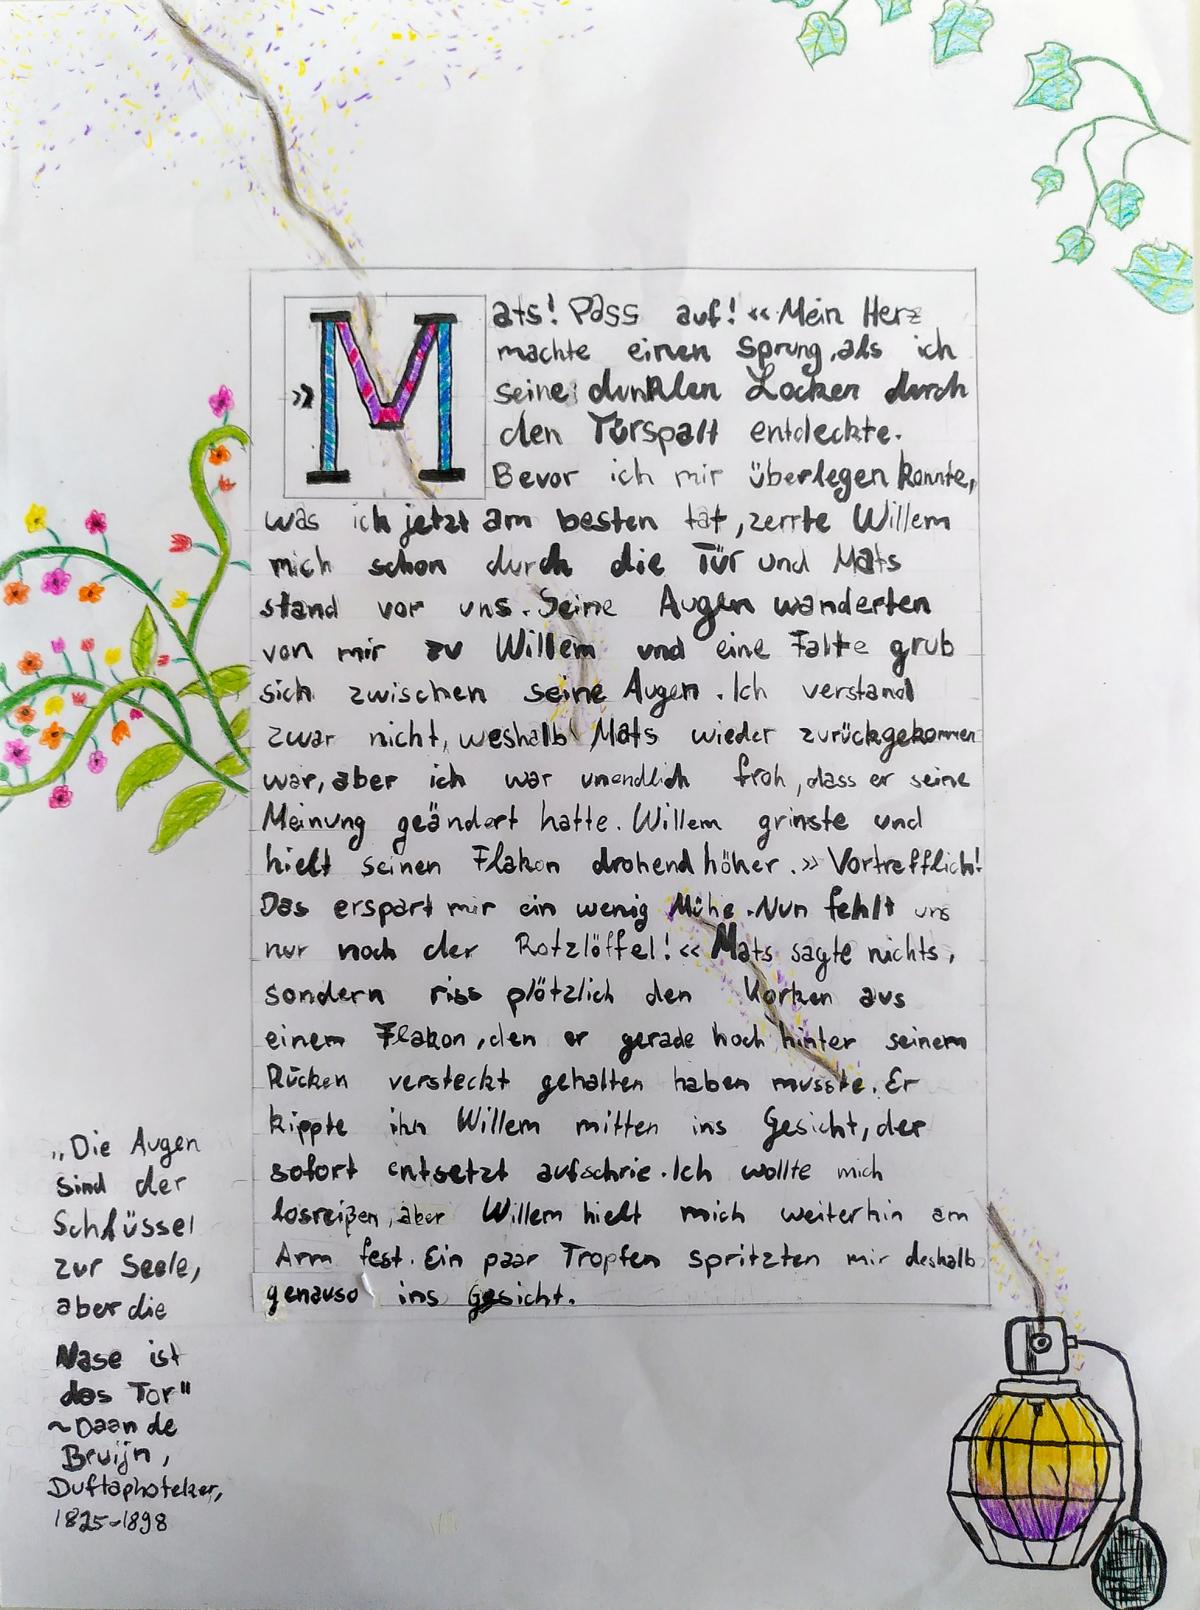 »Mats! Pass auf!« Mein Herz
machte einen Sprung, als ich
seine dunklen Locken durch
den Türspalt entdeckte.
Bevor ich mir überlegen konnte,
was ich jetzt am besten tat, zerrte Willem
mich schon durch die Tür und Mats
stand vor uns. Seine Augen wanderten
von mir zu Willem und eine Falte grub
sich zwischen seine Augen. Ich verstand
zwar nicht, weshalb Mats wieder zurückgekommen
war, aber ich war unendlich froh, dass er seine
Meinung geändert hatte. Willem grinste und
hielt seinen Flakon drohend höher. »Vortrefflich!
Das erspart mir ein wenig Mühe. Nun fehlt uns
nur noch der Rotzlöffel!« Mats sagte nichts,
sondern riss plötzlich den Korken aus
einem Flakon, den er gerade hoch hinter seinem
Rücken versteckt gehalten haben musste. Er
kippte ihn Willem mitten ins Gesicht, der
sofort entsetzt aufschrie. Ich wollte mich
losreißen, aber Willem hielt mich weiterhin am
Arm fest. Ein paar Tropfen spritzten mir deshalb
genauso ins Gesicht.
„Die Augen
sind der
Schlüssel
zur Seele,
aber die
Nase ist
das Tor"
~Daan de
Bruijn,
Duftaphoteker,
1825-1898